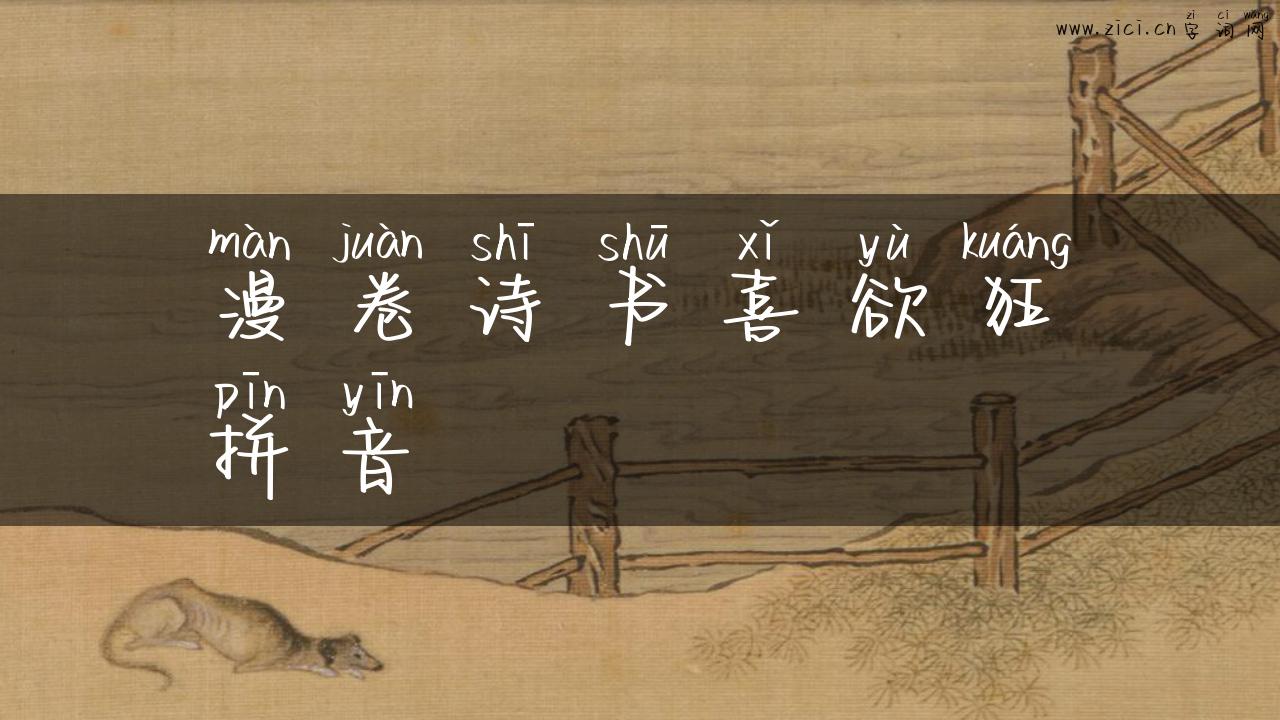 zì cí wǎng
www.zici.cn 字词网
màn juàn shī shū xǐ yù kuáng
漫卷诗书喜欲狂
pīn yīn
拼音